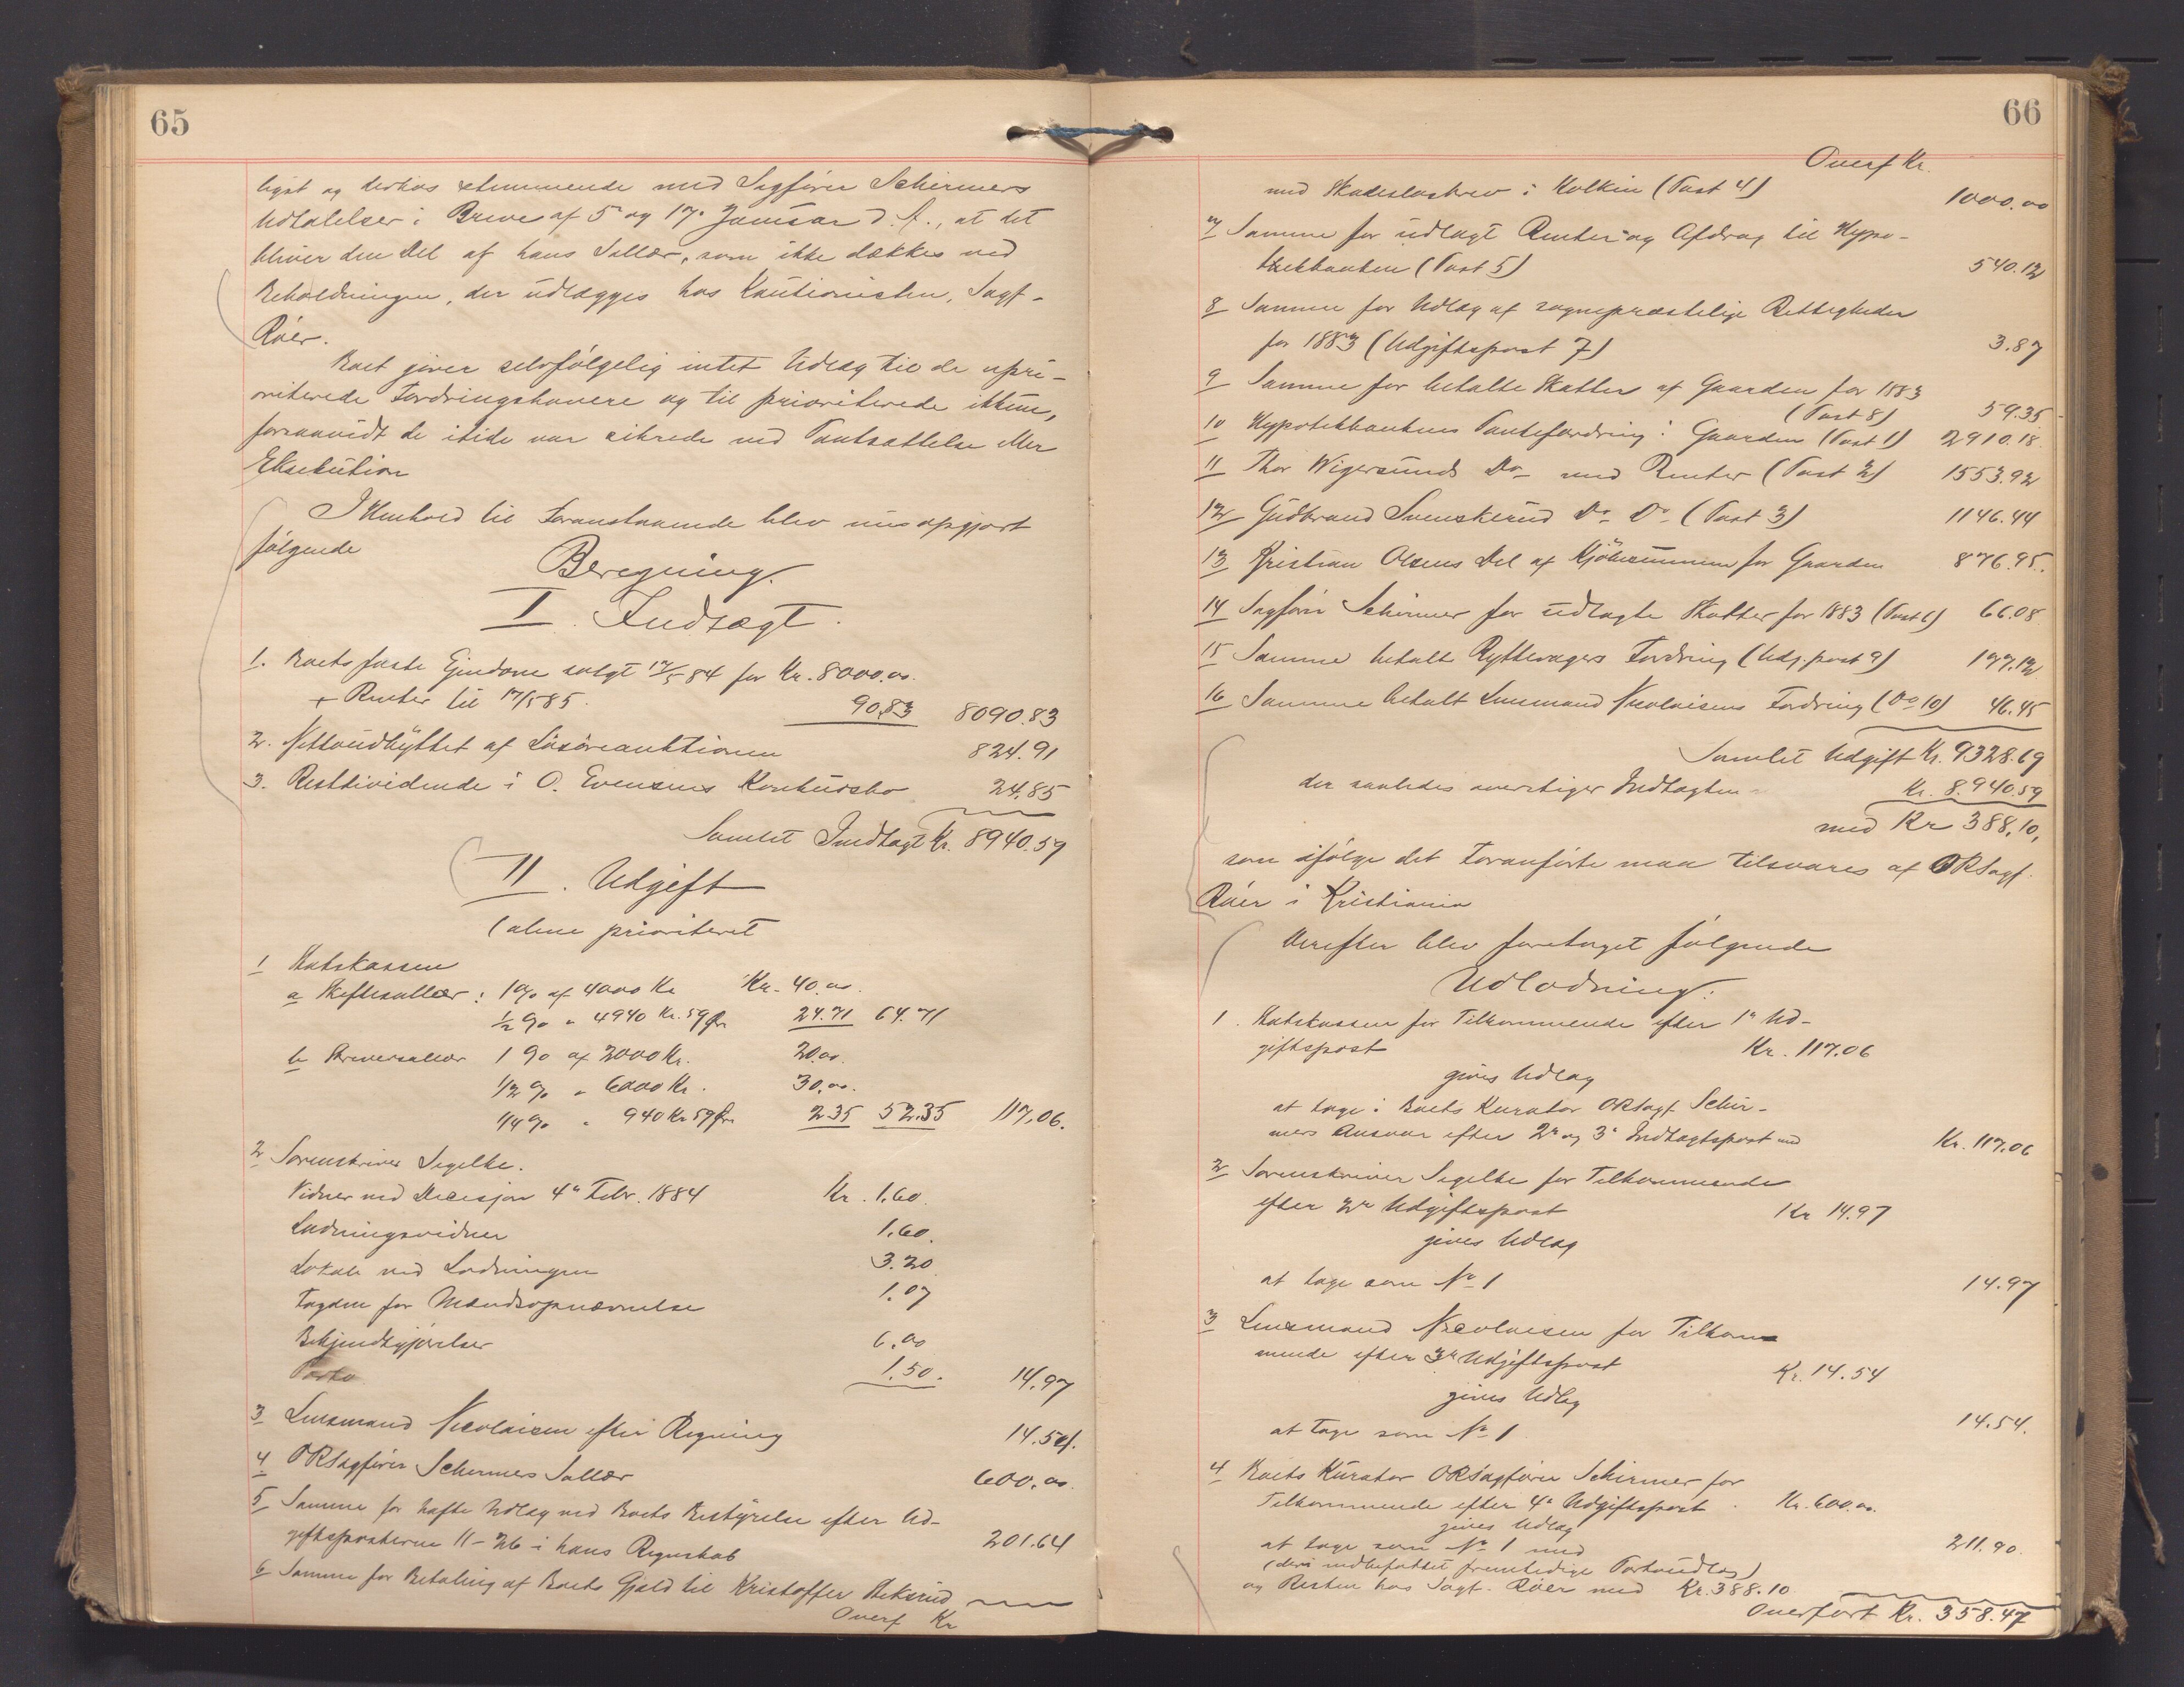 65
ligst og derhos stemmende med Sagfører Schirmers
Udtalelser i Breve af 5 og 17. Januar d. A., at det
bliver den Del af hans Sallær, som ikke dækkes ved
Beholdningen, der udlægges hos Kautionisten, Sagf.
Röer.
Boet giver selvfølgelig intet Udlæg til de upri-
oriterede Fordringshavere og til prioriterede ikkun,
forsaavidt de itide var sikrede ved Pantsættelse eller
Eksekution
I Henhold til Foranstaaende blev nu opgjort
følgende
Beregning.
I. Indtægt.
1. Boets faste Ejendom solgt 17/5 84 for Kr. 8000.00.
+ Renter til 17/5 85. 90.83 8090.83
2. Nettoudbyttet af Løsøreauktionen 824.91
3. Restdividende i O. Evensens Konkursbo 24.85
Samlet Indtægt Kr. 8940.59
II. Udgift
(alene prioriteret
1 Statskassen
a Skiftesallær: 1 % af 4000 Kr Kr. 40.00.
½ % " 4940 Kr. 59 Øre 24.71 64.71
b 1 % af 2000 Kr. 20.00.
1/2 % " 6000 Kr. 30.00.
1/4 % " 940 Kr 59 Øre 2.35 52.35 117.06.
2 Sorenskriver Segelke.
Vidner ved Decisjon 4de Febr. 1884 Kr. 1.60.
Lodningsvidner 1.60.
Lokale ved Lodningen 3.20
for Mændsopnævnelse 1.07
Bekjendtgjørelser 6.00
Porto 1.50. 14.97
3 Lensmand Nicolaisen efter Regning 14.54.
4 ORSagfører Schirmers Sallær 600.00.
5 Samme for hafte Udlæg ved Boets Bestyrelse efter Ud-
giftsposterne 11-26 i hans Regnskab 201.64
6 Samme for Betaling af Boets Gjæld til Kristoffer
Overf Kr
66
Overf Kr.
med Skadesløsbrev i Kolkin (Post 4) 1000.00
7 Samme for udlagt Renter og Afdrag til Hypo-
thekbanken (Post 5) 540.12
8 Samme for Udlæg af sognepræstelige Rettigheder
for 1883 (Udgiftspost 7) 3.87
9 Samme for betalte Skatter af Gaarden for 1883
(Post 8) 59.35
10 Hypotekbankens Pantefordring i Gaarden (Post 1) 2910.18.
11 Thor Wigersunds Do med Renter (Post 2) 1553.92
12 Gudbrand Svenskerud Do Do (Post 3) 1146.44
13 Kristian Olsens Del af Kjöbesummen for Gaarden 876.95.
14 Sagfører Schirmer for udlagte Skatter for 1883 (Post 6) 66.08
15 Samme betalt Ryttevagers Fordring (Udg. post 9) 177.12
16 Samme betalt Lensmand Nicolaisens Fordring (Do 10) 46.45
Samlet Udgift Kr. 9328.69
der saaledes overstiger Indtægten Kr. 8.940.59
med Kr 388.10,
som ifølge det Foranførte maa tilsvares af ORSagf.
Röer i Kristiania
Derefter blev foretaget følgende
Udlodning:
1. Statskassen for Tilkommende efter 1ste Ud-
giftspost Kr. 117.06
gives Udlæg
at tage i Boets Kurator ORSagf. Schir-
mers Ansvar efter 2den og 3die Indtægtspost med Kr. 117.06
2 Sorenskriver Segelke for Tilkommende
efter 2den Udgiftspost Kr 14.97
gives Udlæg
at tage som No 1 14.97
3 Lensmand Nicolaisen for Tilkom-
mende efter 3die Udgiftspost Kr. 14.54
gives Udlæg
at tage som No 1 14.54.
4 Boets Kurator ORSagfører Schirmer for
Tilkommende efter 4de Udgiftspost Kr. 600.00.
gives Udlæg
at tage som No 1 med 211.90.
(deri indbefattet fremtidige Portoudlæg)
og Resten hos Sagf. Röer med Kr. 388.10
Overført Kr. 358.47